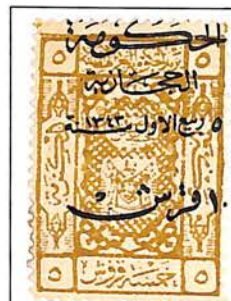 الحكومة
الحجازية
٥ ربيع الاول سنة ١٣٤٣
١٠ قرش
٥ خمسة قروش ٥